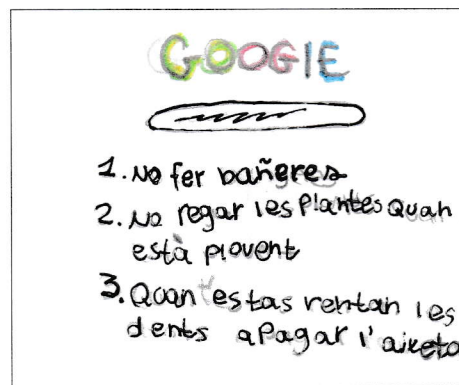 GOOGlE
1. No fer bañeres
2. No regar les plantes quan
està plovent
3. Quan estas rentan les
dents apagar l'aixeta